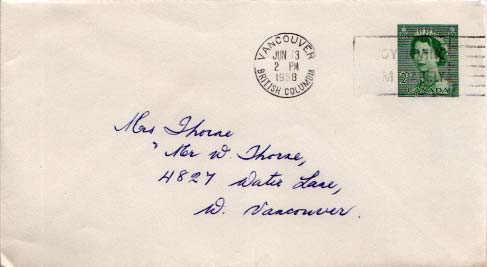 VANCOUVER
JUN 13
2 PM
1958
BRITISH COLUMBIA
2
CANADA
Mrs Thorne
" Mr W. Thorne,
4827 Water Lane,
W. Vancouver.